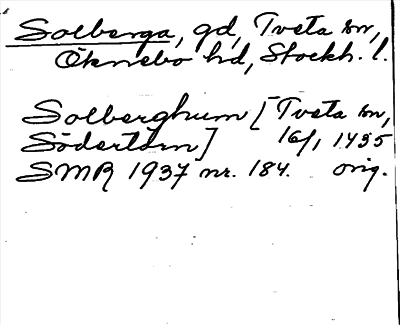 Solberga, gd, Tveta sn,
Öknebo hd, Stockh. l.
Solberghum [Tveta sn,
Södertörn] 16/1 1435
SMR 1937 nr. 184. orig.